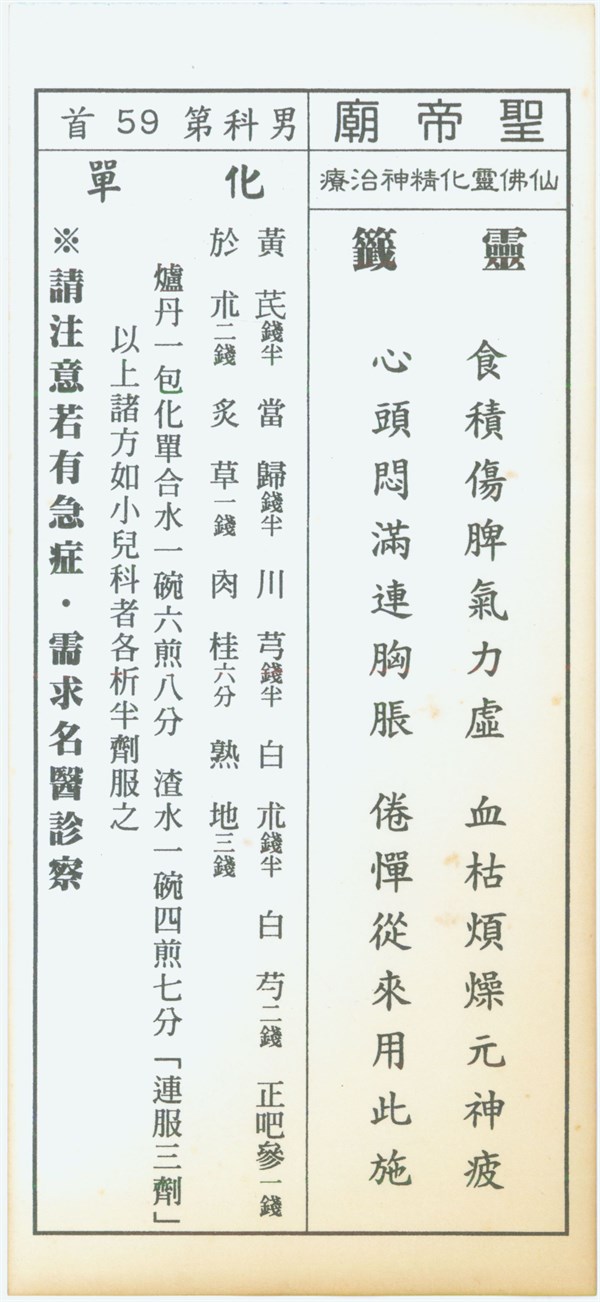 聖帝廟
仙佛靈化精神治療
靈籤
食積傷脾氣力虛　血枯煩燥元神疲
心頭悶滿連胸脹　倦憚從來用此施
男科第59首
化單
黃芪錢半　當歸錢半　川芎錢半　白朮錢半　白芍二錢　正吧參一錢
於朮二錢　炙草一錢　肉桂六分　熟地三錢
爐丹一包化單合水一碗六煎八分　渣水一碗四煎七分「連服三劑」
以上諸方如小兒科者各析半劑服之
※請注意若有急症・需求名醫診察